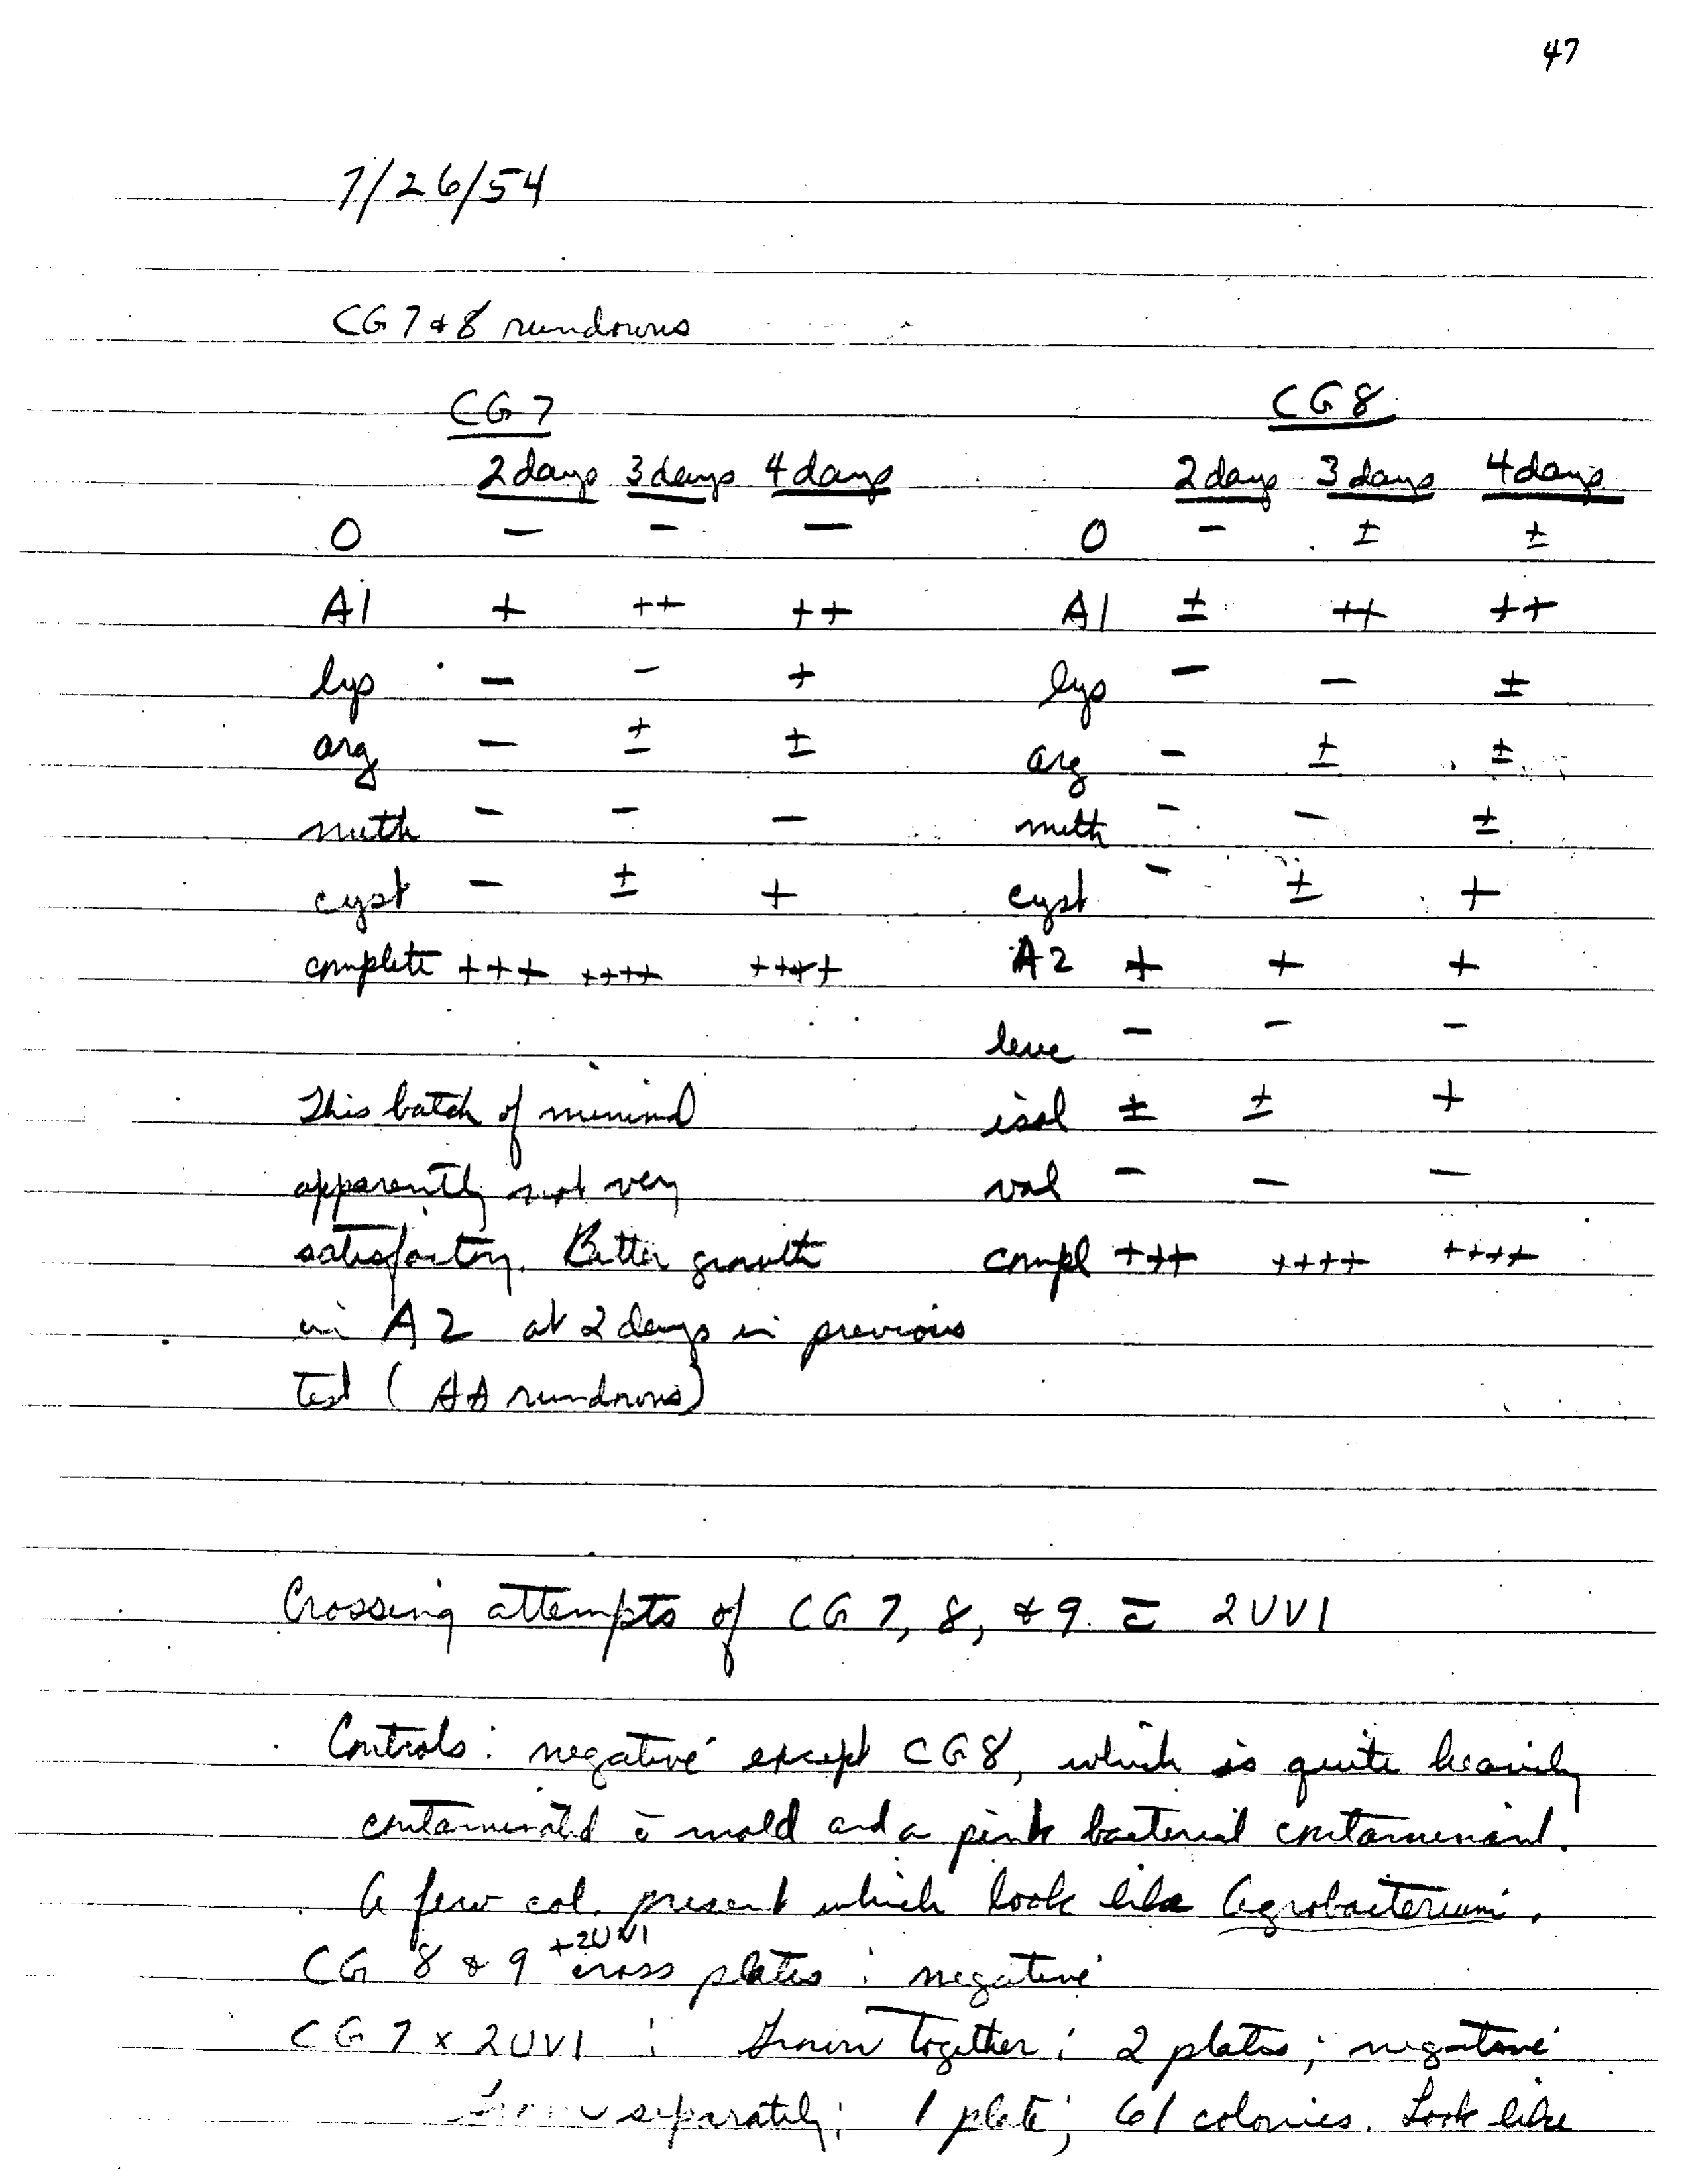 47
7/26/54
CG 7 & 8 rundowns
CG 7 CG 8
2 days 3 days 4 days 2 days 3 days 4 days
O − − − O − ± ±
A1 + ++ ++ A1 ± ++ ++
lys − − + lys − − ±
arg − ± ± arg − ± ±
meth − − − meth − − ±
cyst − ± + cyst − ± +
complete +++ ++++ ++++ A2 + + +
leuc − − −
This batch of minimal isol ± ± +
apparently not very val − − −
satisfactory. Better growth compl +++ ++++ ++++
in A2 at 2 days in previous
test (AA rundowns)
Crossing attempts of CG 7, 8, & 9 c̄ 2UV1
Controls: negative except CG8, which is quite heavily
contaminated c̄ mold and a pink bacterial contaminant.
A few col. present which look like Agrobacterium.
CG 8 & 9 +2UV1 cross plates: negative
CG 7 x 2UV1: Grown together: 2 plates; negative
Grown separately: 1 plate; 61 colonies. Look like